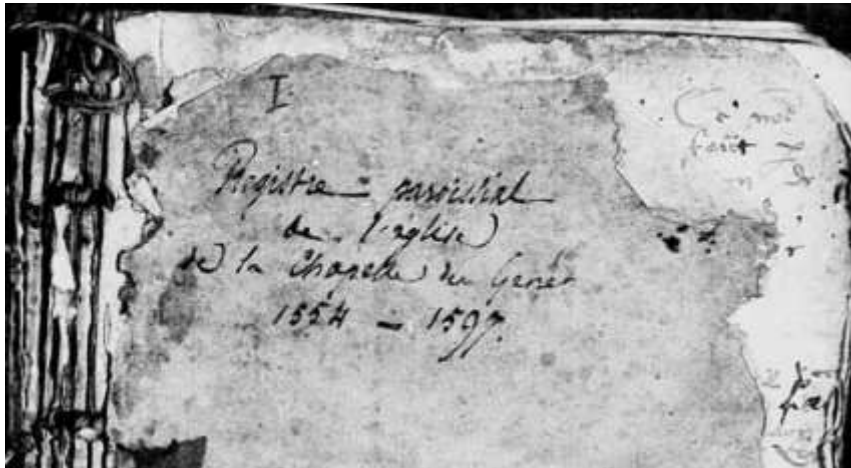 I
Registre paroissial
de l'église
de la Chapelle du Genêt
1554 – 1597.